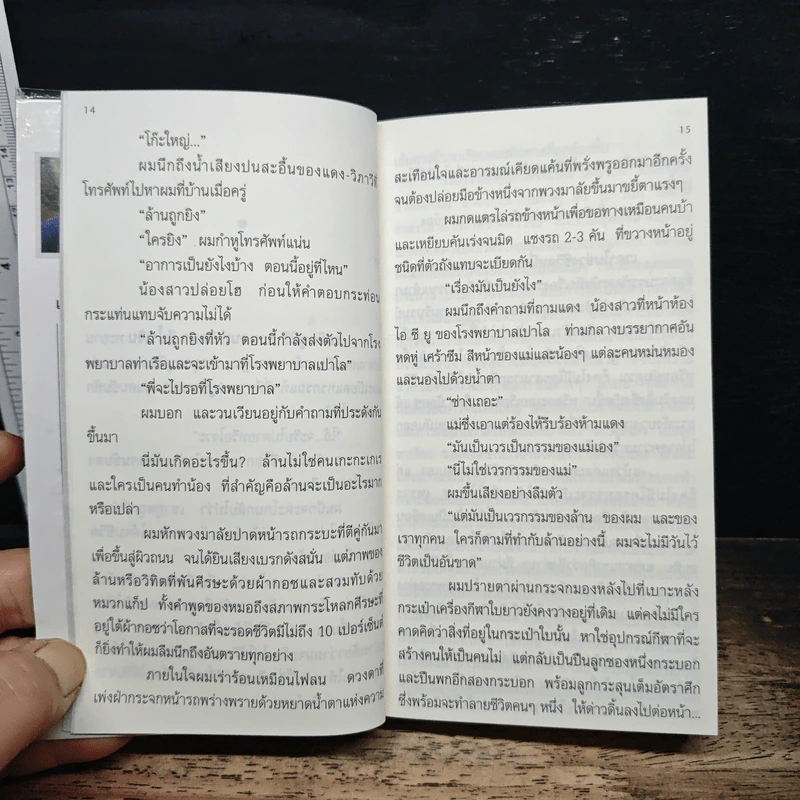 14
“โก๊ะใหญ่...”
ผมนึกถึงน้ำเสียงปนสะอื้นของแดง-วิภาวี
โทรศัพท์ไปหาผมที่บ้านเมื่อครู่
“ล้านถูกยิง”
“ใครยิง” ผมกำหูโทรศัพท์แน่น
“อาการเป็นยังไงบ้าง ตอนนี้อยู่ที่ไหน”
น้องสาวปล่อยโฮ ก่อนให้คำตอบกระท่อน
กระแท่นแทบจับความไม่ได้
“ล้านถูกยิงที่หัว ตอนนี้กำลังส่งตัวไปจากโรง
พยาบาลท่าเรือและจะเข้ามาที่โรงพยาบาลเปาโล”
“พี่จะไปรอที่โรงพยาบาล”
ผมบอก และวนเวียนอยู่กับคำถามที่ประดังกัน
ขึ้นมา
นี่มันเกิดอะไรขึ้น? ล้านไม่ใช่คนเกะกะเกเร
และใครเป็นคนทำน้อง ที่สำคัญคือล้านจะเป็นอะไรมาก
หรือเปล่า
ผมหักพวงมาลัยปาดหน้ารถกระบะที่ตีคู่กันมา
เพื่อขึ้นสู่ผิวถนน จนได้ยินเสียงเบรกดังสนั่น แต่ภาพของ
ล้านหรือวิทิตที่พันศีรษะด้วยผ้ากอซและสวมทับด้วย
หมวกแก็ป ทั้งคำพูดของหมอถึงสภาพกระโหลกศีรษะที่
อยู่ใต้ผ้ากอซว่าโอกาสที่จะรอดชีวิตมีไม่ถึง 10 เปอร์เซ็นต์
ก็ยิ่งทำให้ผมลืมนึกถึงอันตรายทุกอย่าง
ภายในใจผมเร่าร้อนเหมือนไฟลน ดวงตาที่
เพ่งฝ่ากระจกหน้ารถพร่างพรายด้วยหยาดน้ำตาแห่งความ
15
สะเทือนใจและอารมณ์เคียดแค้นที่พรั่งพรูออกมาอีกครั้ง
จนต้องปล่อยมือข้างหนึ่งจากพวงมาลัยขึ้นมาขยี้ตาแรงๆ
ผมกดแตรไล่รถข้างหน้าเพื่อขอทางเหมือนคนบ้า
และเหยียบคันเร่งจนมิด แซงรถ 2-3 คัน ที่ขวางหน้าอยู่
ชนิดที่ตัวถังแทบจะเบียดกัน
“เรื่องมันเป็นยังไง”
ผมนึกถึงคำถามที่ถามแดง น้องสาวที่หน้าห้อง
ไอ ซี ยู ของโรงพยาบาลเปาโล ท่ามกลางบรรยากาศอัน
หดหู่ เศร้าซึม สีหน้าของแม่และน้องๆ แต่ละคนหม่นหมอง
และนองไปด้วยน้ำตา
“ช่างเถอะ”
แม่ซึ่งเอาแต่ร้องไห้รีบร้องห้ามแดง
“มันเป็นเวรเป็นกรรมของแม่เอง”
“นี่ไม่ใช่เวรกรรมของแม่”
ผมขึ้นเสียงอย่างลืมตัว
“แต่มันเป็นเวรกรรมของล้าน ของผม และของ
เราทุกคน ใครก็ตามที่ทำกับล้านอย่างนี้ ผมจะไม่มีวันไว้
ชีวิตเป็นอันขาด”
ผมปรายตาผ่านกระจกมองหลังไปที่เบาะหลัง
กระเป๋าเครื่องกีฬาใบยาวยังคงวางอยู่ที่เดิม แต่คงไม่มีใคร
คาดคิดว่าสิ่งที่อยู่ในกระเป๋าใบนั้น หาใช่อุปกรณ์กีฬาที่จะ
สร้างคนให้เป็นคนไม่ แต่กลับเป็นปืนลูกซองหนึ่งกระบอก
และปืนพกอีกสองกระบอก พร้อมลูกกระสุนเต็มอัตราศึก
ซึ่งพร้อมจะทำลายชีวิตคนๆ หนึ่ง ให้ด่าวดิ้นลงไปต่อหน้า...